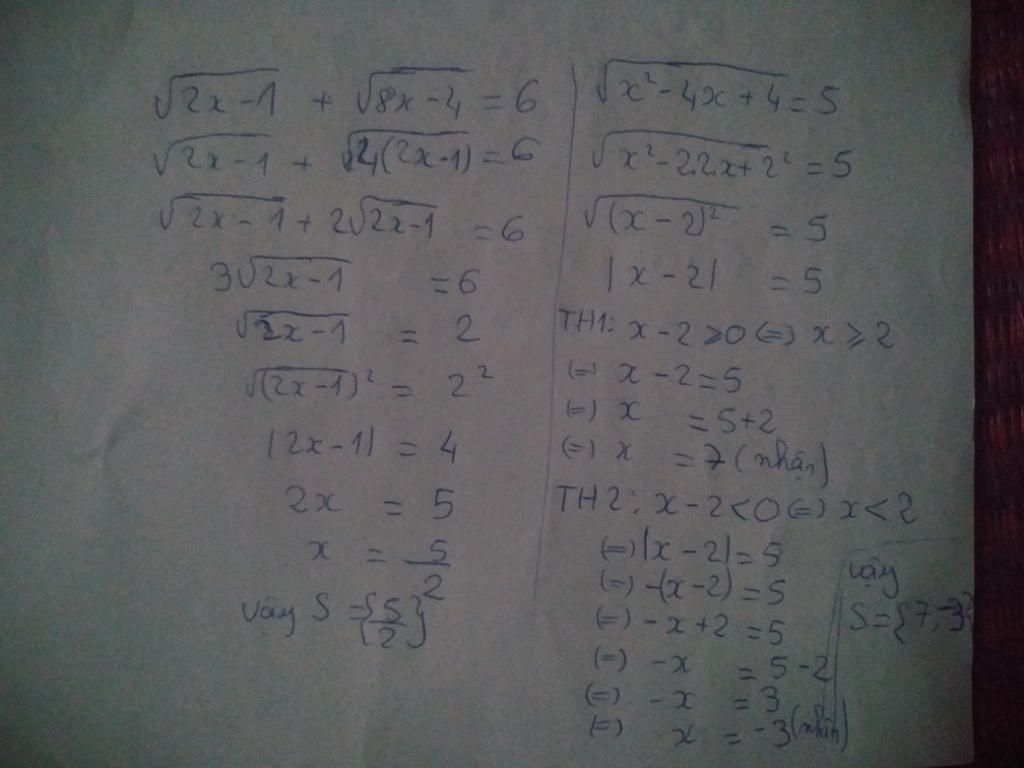 √2x-1 + √8x-4 = 6
√2x-1 + √4(2x-1) = 6
√2x-1 + 2√2x-1 = 6
3√2x-1 = 6
√2x-1 = 2
√(2x-1)² = 2²
|2x-1| = 4
2x = 5
x = 5/2
vậy S = {5/2}
√x²-4x+4 = 5
√x²-2.2x+2² = 5
√(x-2)² = 5
|x-2| = 5
TH1: x-2 ≥ 0 (=) x ≥ 2
(=) x-2 = 5
(=) x = 5+2
(=) x = 7 (nhận)
TH2: x-2 < 0 (=) x < 2
(=) |x-2| = 5
(=) -(x-2) = 5
(=) -x+2 = 5
(=) -x = 5-2
(=) -x = 3
(=) x = -3 (nhận)
vậy
S = {7,-3}